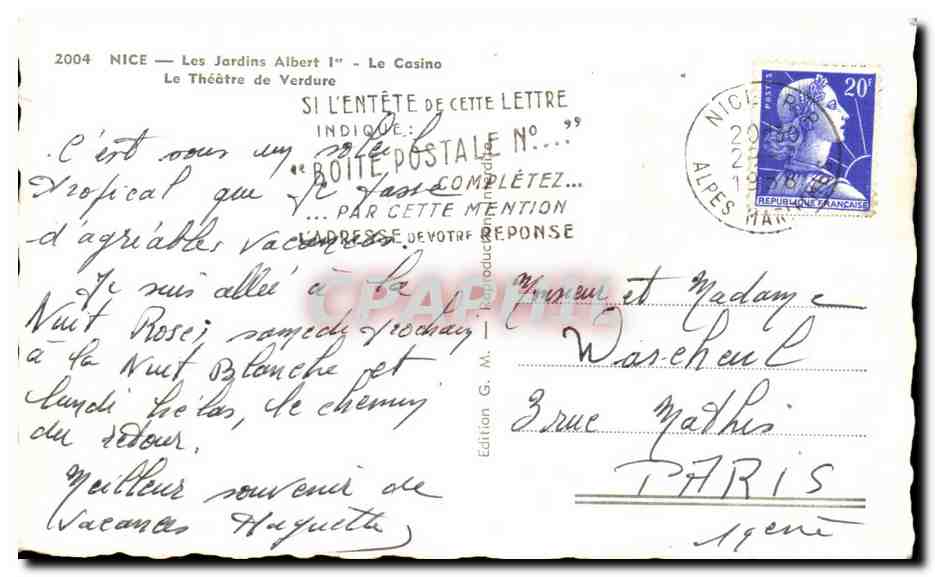 2004 NICE — Les Jardins Albert Ier - Le Casino
Le Théâtre de Verdure
SI L'ENTÊTE DE CETTE LETTRE
INDIQUE:
"BOITE POSTALE No...."
COMPLÉTEZ...
...PAR CETTE MENTION
L'ADRESSE DE VOTRE RÉPONSE
NICE R.P.
ALPES MAR
POSTES
20F
REPUBLIQUE FRANÇAISE
C'est sous un soleil
tropical que je passe
d'agréables vacances.
Je suis allée à la
Nuit Rose, samedi prochain
à la Nuit Blanche et
lundi hélas, le chemin
du retour.
Meilleur souvenir de
vacances Huguette
Edition G. M. — Reproduction interdite
Monsieur et Madame
3 rue Mathis
PARIS
19eme
CPAPHIL